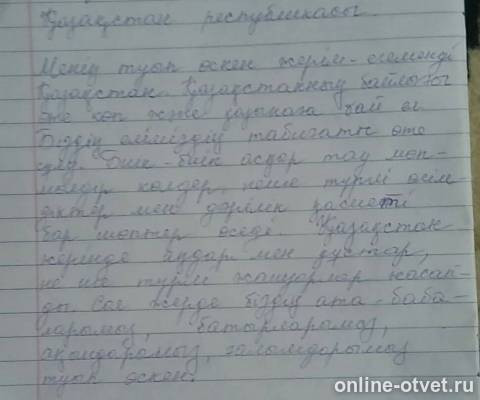 Қазақстан республикасы.
Менің туып өскен жерім - егеменді
Қазақстан. Қазақстанның байлығы
өте көп және қазынаға бай ел
Біздің еліміздің табиғаты өте
Биік-биік асқар тау мөп-
мөлдір көлдер, неше түрлі өсім-
діктер мен дәрілік қасиеті
бар шөптер өседі. Қазақстан
жерінде аңдар мен құстар,
не ше түрлі жануарлар жасай-
ды. Сол жерде біздің ата-баба-
ларымыз, батырларымыз,
ақындарымыз, ғалымдарымыз
туып өскен.
online-otvet.ru